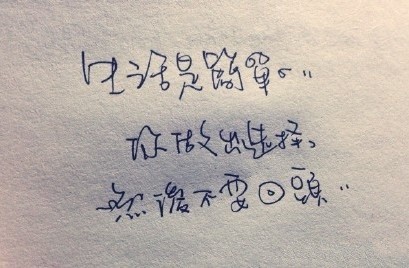 生活是簡單。..
你做出選擇。
然後不要回頭..